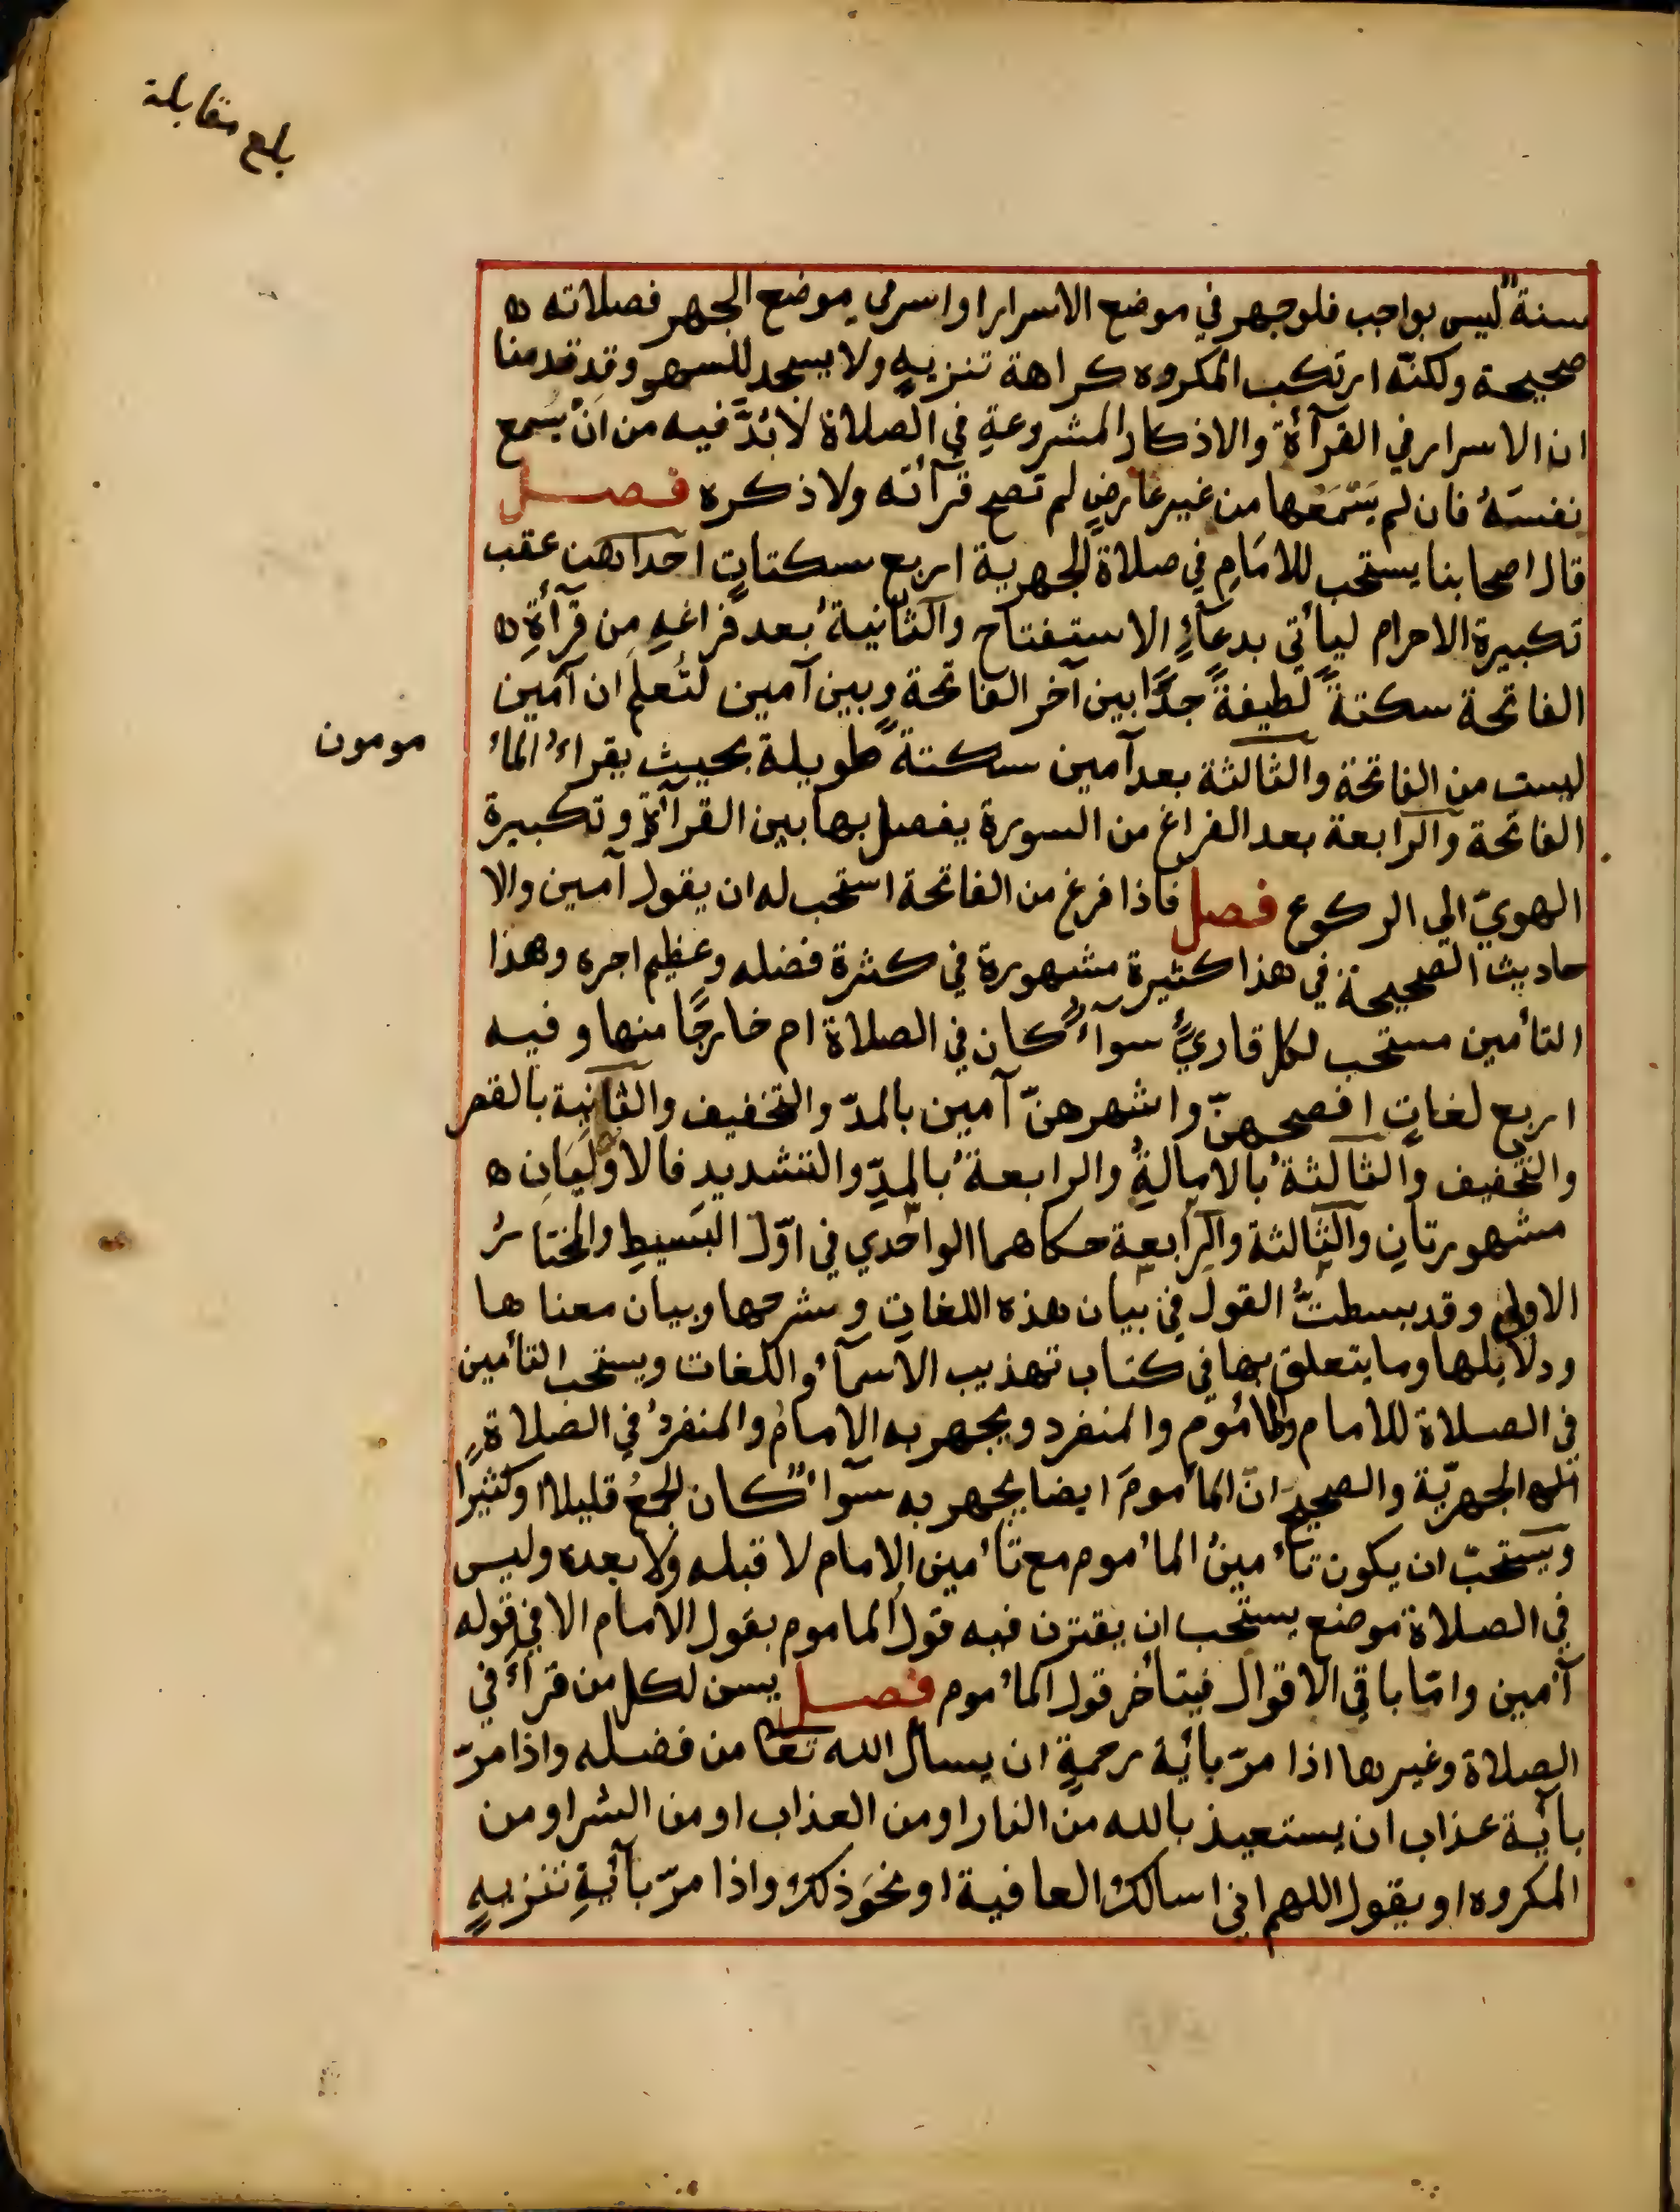 بلغ مقابلة
سنةٌ ليس بواجب فلو جهر في موضع الاسرار او اسر في موضع الجهر فصلاته ه
صحيحة ولكنّه ارتكب المكروه كراهة تنزيهٍ ولا يسجد للسهو وقد قدمنا
ان الاسرار في القرآءة والاذكار المشروعةِ في الصلاة لابُدَّ فيه من ان يُسمع
نفسَهُ فان لم يَسْمَعها من غير عارضٍ لم تصح قرآته ولا ذكره فصل
قال اصحابنا يستحب للامَامِ في صلاة الجهرية اربع سكتاتٍ احداهن عقب
تكبيرة الاحرام ليأتي بدعآءِ الاستفتاح والثانيةُ بعد فراغهِ مِن قرآءةِ ه
الفاتحة سكتةً لطيفةً جدًّا بين آخر الفاتحة وبين آمين لتُعلم ان آمين
ليست من الفاتحة والثالثة بعد آمين سكتةً طويلة بحيث يقراءُ المأ
مومون
الفاتحة والرابعة بعد الفراغ من السورة يفصل بها بين القرآءة وتكبيرة
الهويّ الي الركوع فصل فاذا فرغ من الفاتحة استحب له ان يقول آمين والا
حاديث الصحيحة في هذا كثيرة مشهورة في كثرة فضله وعظيم اجره وهذا
التأمين مستحب لكل قاريٍّ سوآءٌ كان في الصلاة ام خارجًا منها وفيه
اربع لغاتٍ افصحهنّ واشهرهنّ آمين بالمدّ والتخفيف والثانية بالقصر
والتخفيف والثالثةُ بالامالةِ والرابعةُ بالمدّ والتشديدِ فالاوليَانِ ه
مشهورتانِ والثالثة والرابعة حكاهما الواحدي في اوّل البَسيطِ والمختارُ
الاولي وقد بسطتُّ القول في بيان هذه اللغاتِ وشرحها وبيان معناها
ودلايلها وما يتعلق بها في كتاب تهذيب الاسمآءِ واللغات ويستحب التأمين
في الصلاة للامام والمأموم والمنفرد ويجهر به الامامُ والمنفردُ في الصلاةِ
الجهريّة والصحيح انّ المأمومَ ايضا يجهر به سوآءٌ كان الجمعُ قليلا او كثيرًا
ويستحبّ ان يكون تأمينُ المأموم مع تأمين الامام لا قبله ولا بعده وليس
في الصلاة موضع يستحب ان يقترن فيه قول الماموم بقول الامام الا في قوله
آمين وامّا باقي الاقوال فيتأخر قول المأموم فصل يسن لكل من قرأ في
الصلاة وغيرها اذا مرّ بآية رحمةٍ ان يسال الله تعا من فضله واذا مرّ
بآية عذاب ان يستعيذ بالله من النار او من العذاب او من الشر او من
المكروه او يقول اللهم اني اسالك العافية او نحوَ ذلك واذا مرّ بآيةِ تنزيهٍ